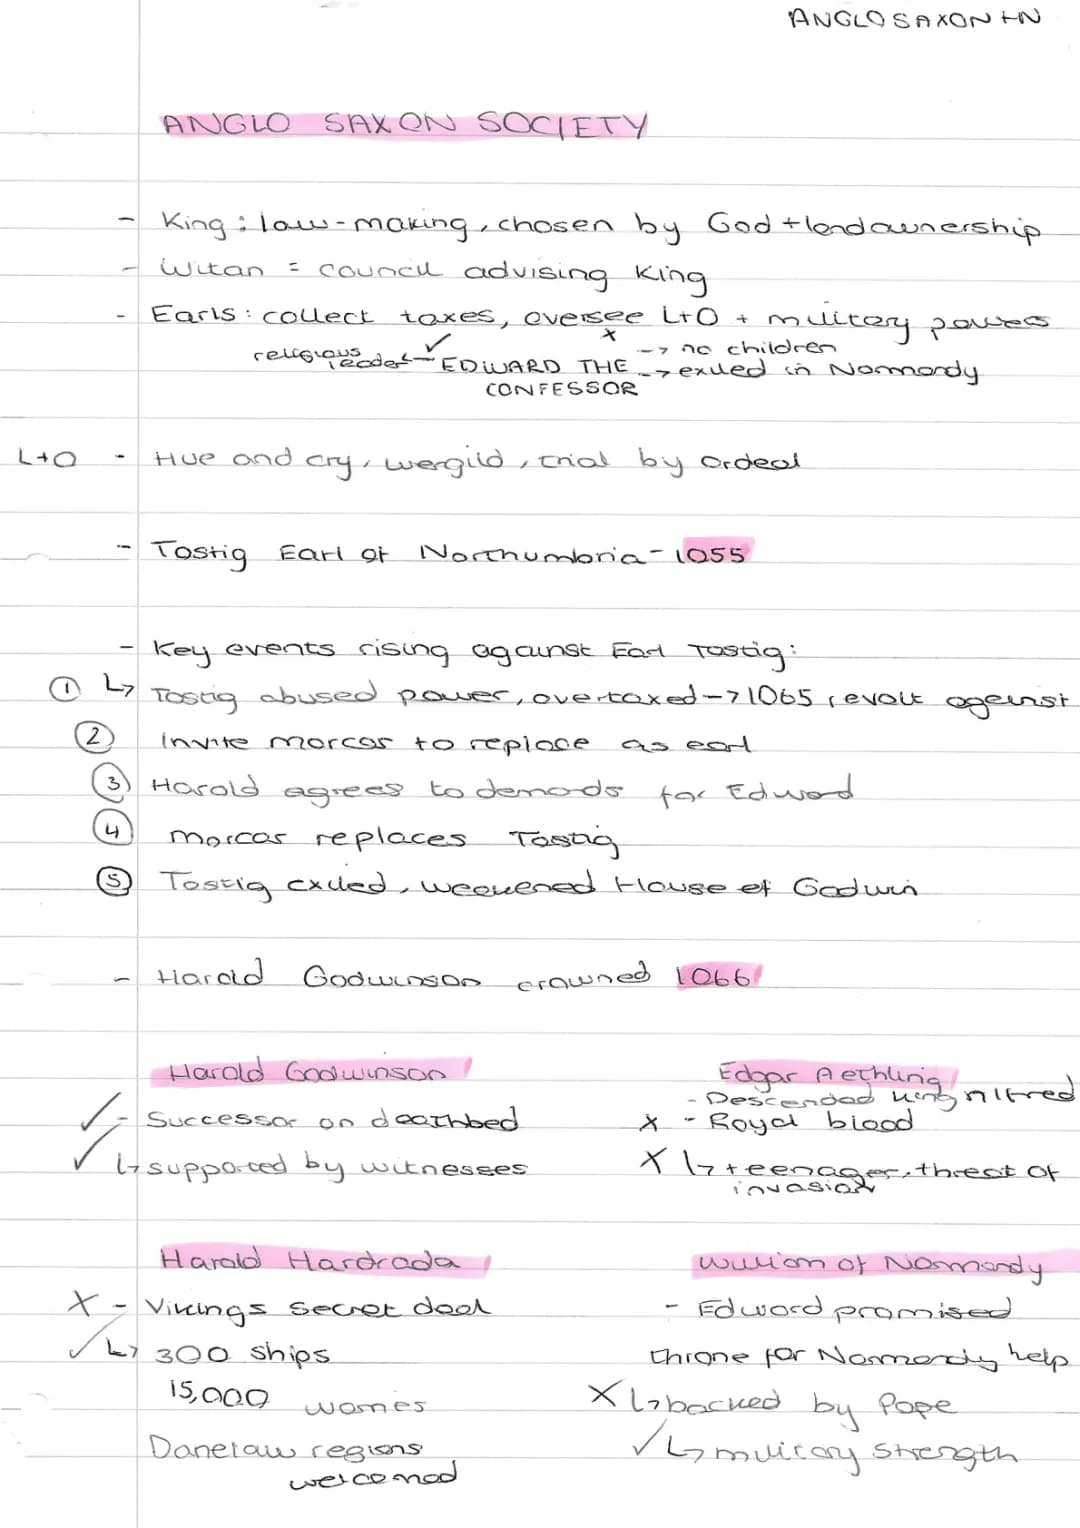 ANGLO SAXON +N
ANGLO SAXON SOCIETY
- King: law-making, chosen by God + landownership
- Witan = council advising King
- Earls: collect taxes, oversee L+O + military powers
religious leader ← ✓ EDWARD THE CONFESSOR x → no children
→ exiled in Normandy
L+O - Hue and cry, wergild, trial by ordeal
- Tostig Earl of Northumbria - 1055
- Key events rising against Earl Tostig:
① ↳ Tostig abused power, overtaxed → 1065, revolt against
② Invite morcar to replace as earl
③ Harold agrees to demands for Edward
④ morcar replaces Tostig
⑤ Tostig exiled, weakened House of Godwin
- Harold Godwinson crowned 1066
Harold Godwinson
✓ - Successor on deathbed
✓ ↳ supported by witnesses
Edgar Aethling
- Descended king Alfred
x - Royal blood
X ↳ teenager, threat of
invasion
Harald Hardrada
X - Vikings secret deal
✓ ↳ 300 ships
15,000 warriors
Danelaw regions
welcomed
William of Normandy
- Edward promised
throne for Normandy help
X ↳ backed by Pope
✓ ↳ military strength